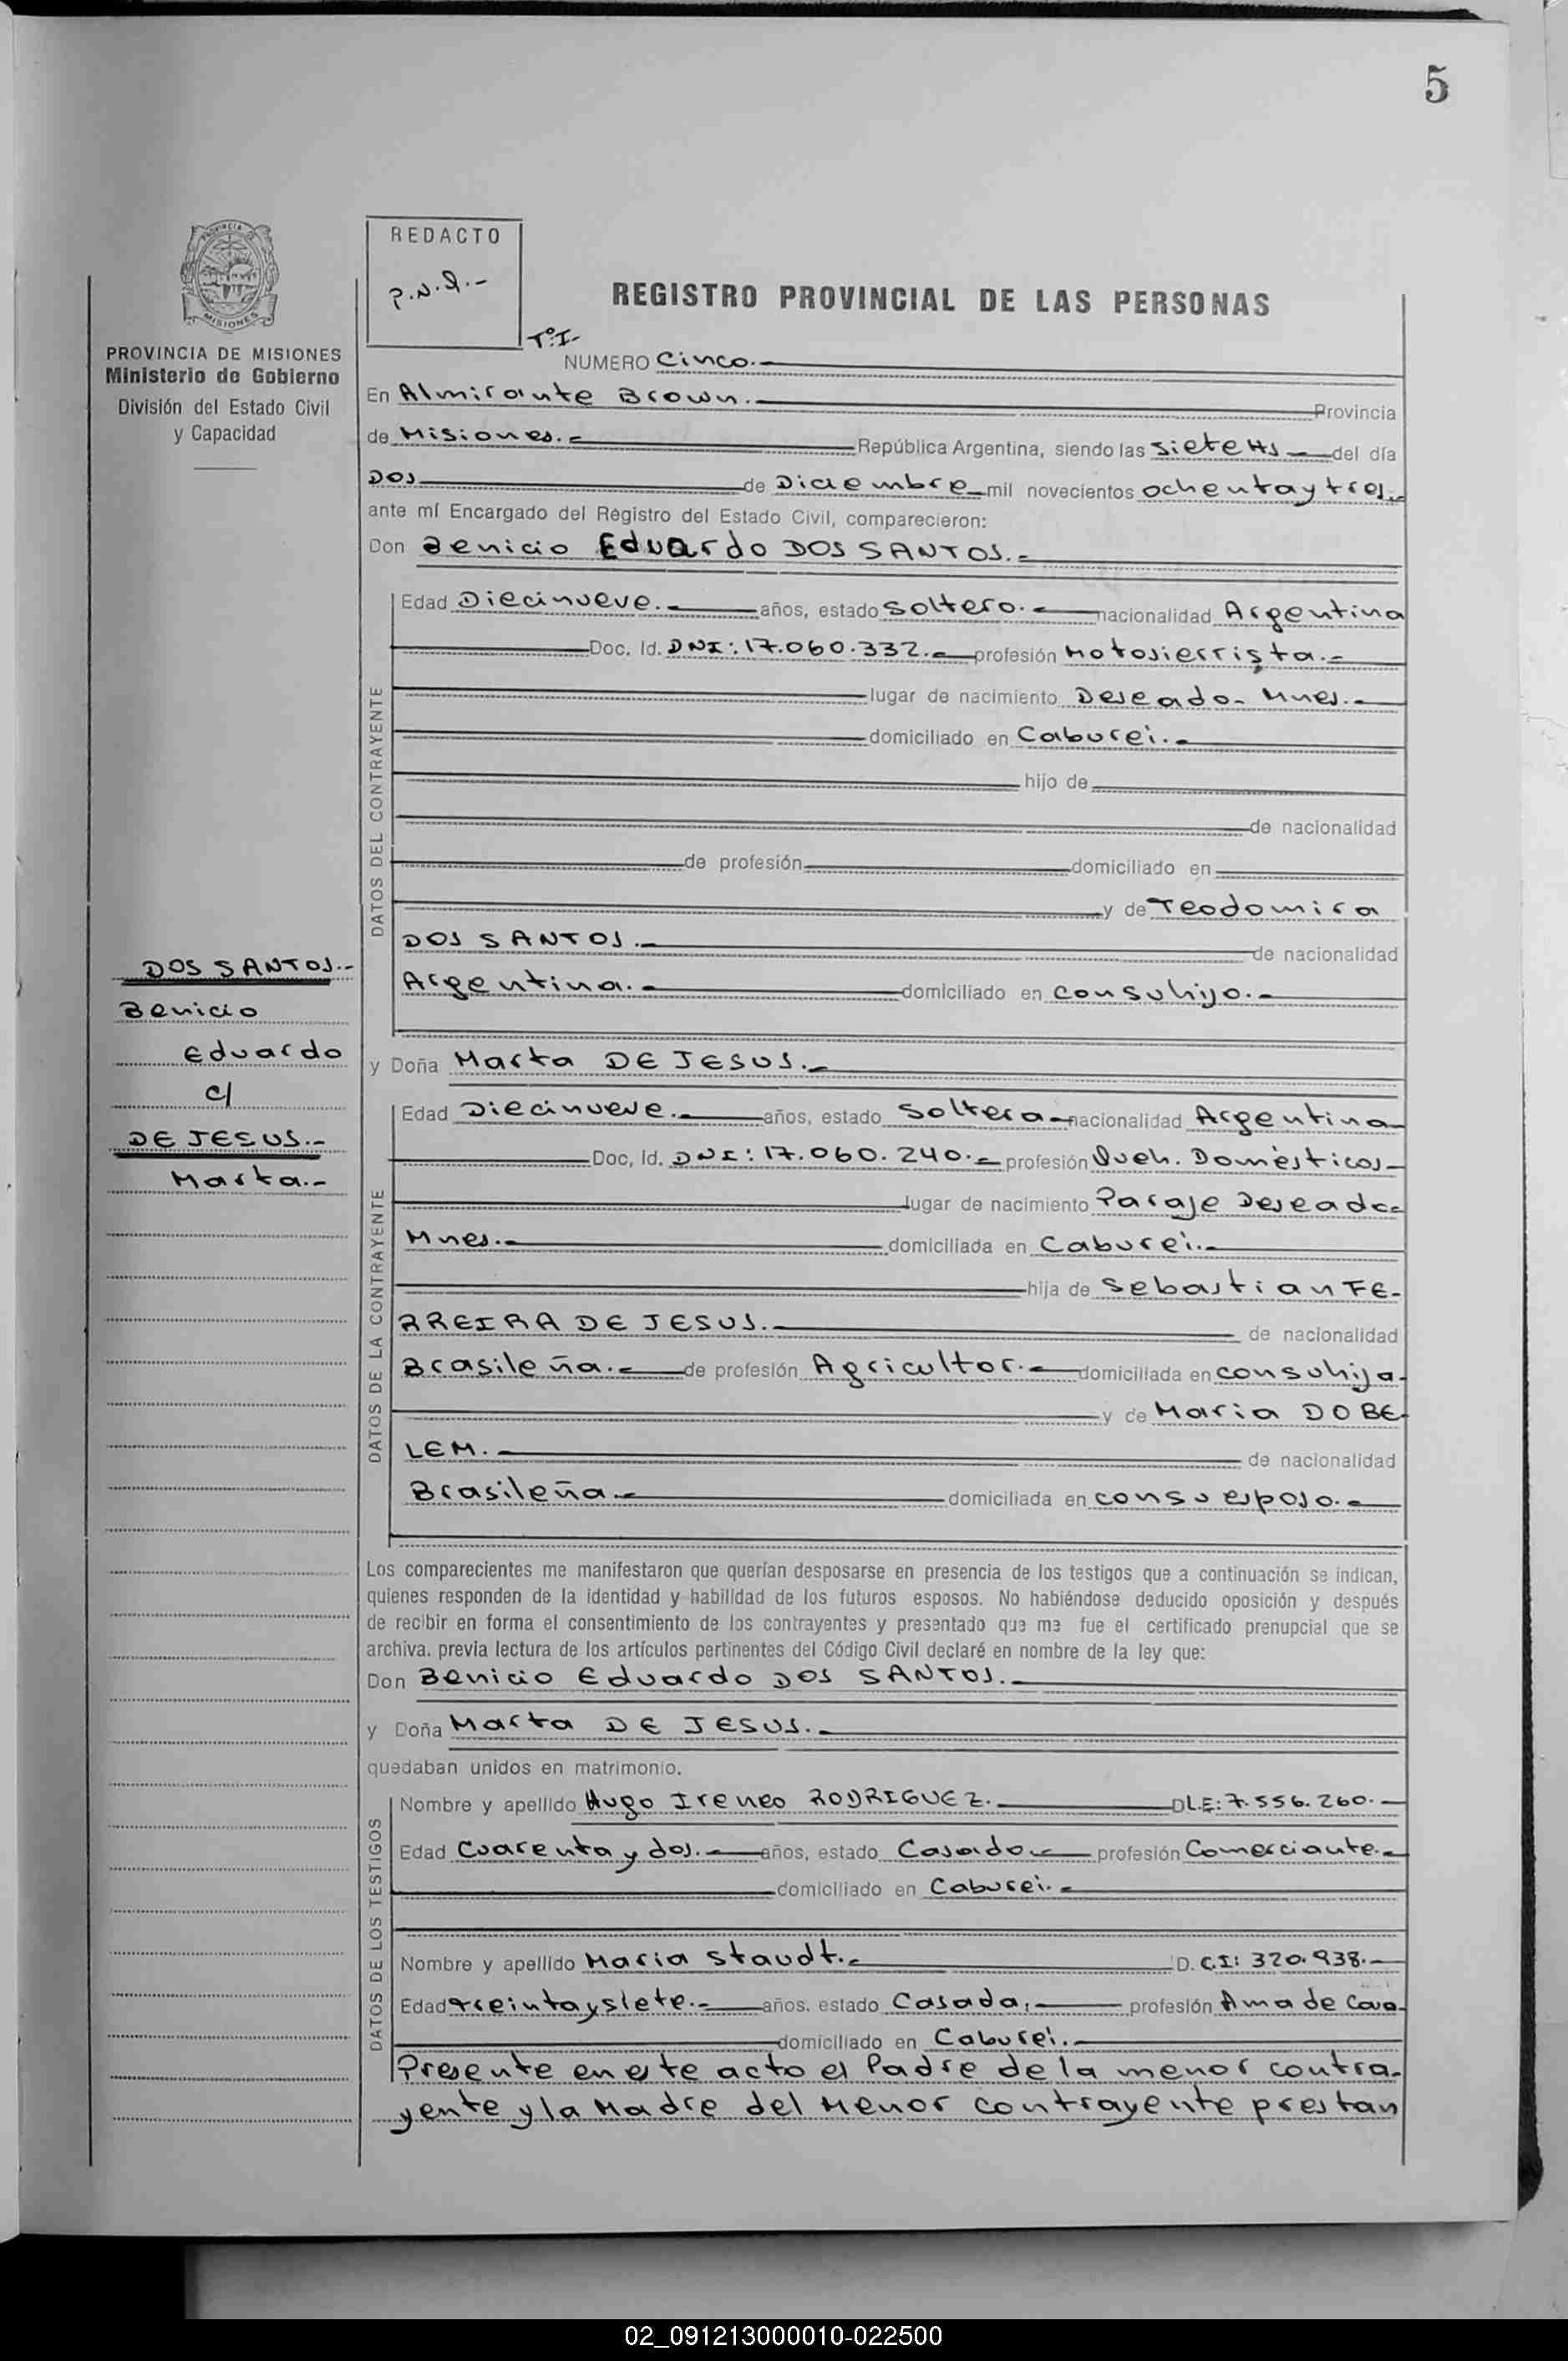 5
REDACTO
P.N.R.-
REGISTRO PROVINCIAL DE LAS PERSONAS
Tº:I-
PROVINCIA DE MISIONES
Ministerio de Gobierno
División del Estado Civil
y Capacidad
NUMERO Cinco.-
En Almirante Brown.- Provincia
de Misiones.- República Argentina, siendo las siete Hs del día
DOS de Diciembre mil novecientos ochenta y tres.-
ante mí Encargado del Registro del Estado Civil, comparecieron:
Don Benicio Eduardo DOS SANTOS.-
DATOS DEL CONTRAYENTE
Edad Diecinueve.- años, estado soltero.- nacionalidad Argentina
Doc. Id. DNI: 17.060.332.- profesión Motosierrista.-
lugar de nacimiento Deseado- Mnes.-
domiciliado en Caburei.-
hijo de
de nacionalidad
de profesión domiciliado en
y de Teodomira
DOS SANTOS.- de nacionalidad
Argentina.- domiciliado en con su hijo.-
DOS SANTOS.-
Benicio
Eduardo
c/
DE JESUS.-
Marta.-
y Doña Marta DE JESUS.-
DATOS DE LA CONTRAYENTE
Edad Diecinueve.- años, estado soltera nacionalidad Argentina
Doc, Id. DNI: 17.060.240.- profesión Queh. Domésticos-
lugar de nacimiento Paraje Deseado-
Mnes.- domiciliada en Caburei.-
hija de Sebastian FE-
RREIRA DE JESUS.- de nacionalidad
Brasileña.- de profesión Agricultor.- domiciliada en con su hija-
y de Maria DO BE-
LEM.- de nacionalidad
Brasileña.- domiciliada en con su esposo.-
Los comparecientes me manifestaron que querían desposarse en presencia de los testigos que a continuación se indican,
quienes responden de la identidad y habilidad de los futuros esposos. No habiéndose deducido oposición y después
de recibir en forma el consentimiento de los contrayentes y presentado que me fue el certificado prenupcial que se
archiva. previa lectura de los artículos pertinentes del Código Civil declaré en nombre de la ley que:
Don Benicio Eduardo DOS SANTOS.-
y Doña Marta DE JESUS.-
quedaban unidos en matrimonio.
DATOS DE LOS TESTIGOS
Nombre y apellido Hugo Ireneo RODRIGUEZ.- D L.E: 7.556.260.-
Edad Cuarenta y dos.- años, estado Casado.- profesión Comerciante.-
domiciliado en Caburei.-
Nombre y apellido Maria Staudt.- D. C.I: 320.938.-
Edad treinta y siete.- años. estado Casada.- profesión Ama de Casa-
domiciliado en Caburei.-
Presente en este acto el Padre de la menor contra-
yente y la Madre del Menor contrayente prestan
02_091213000010-022500